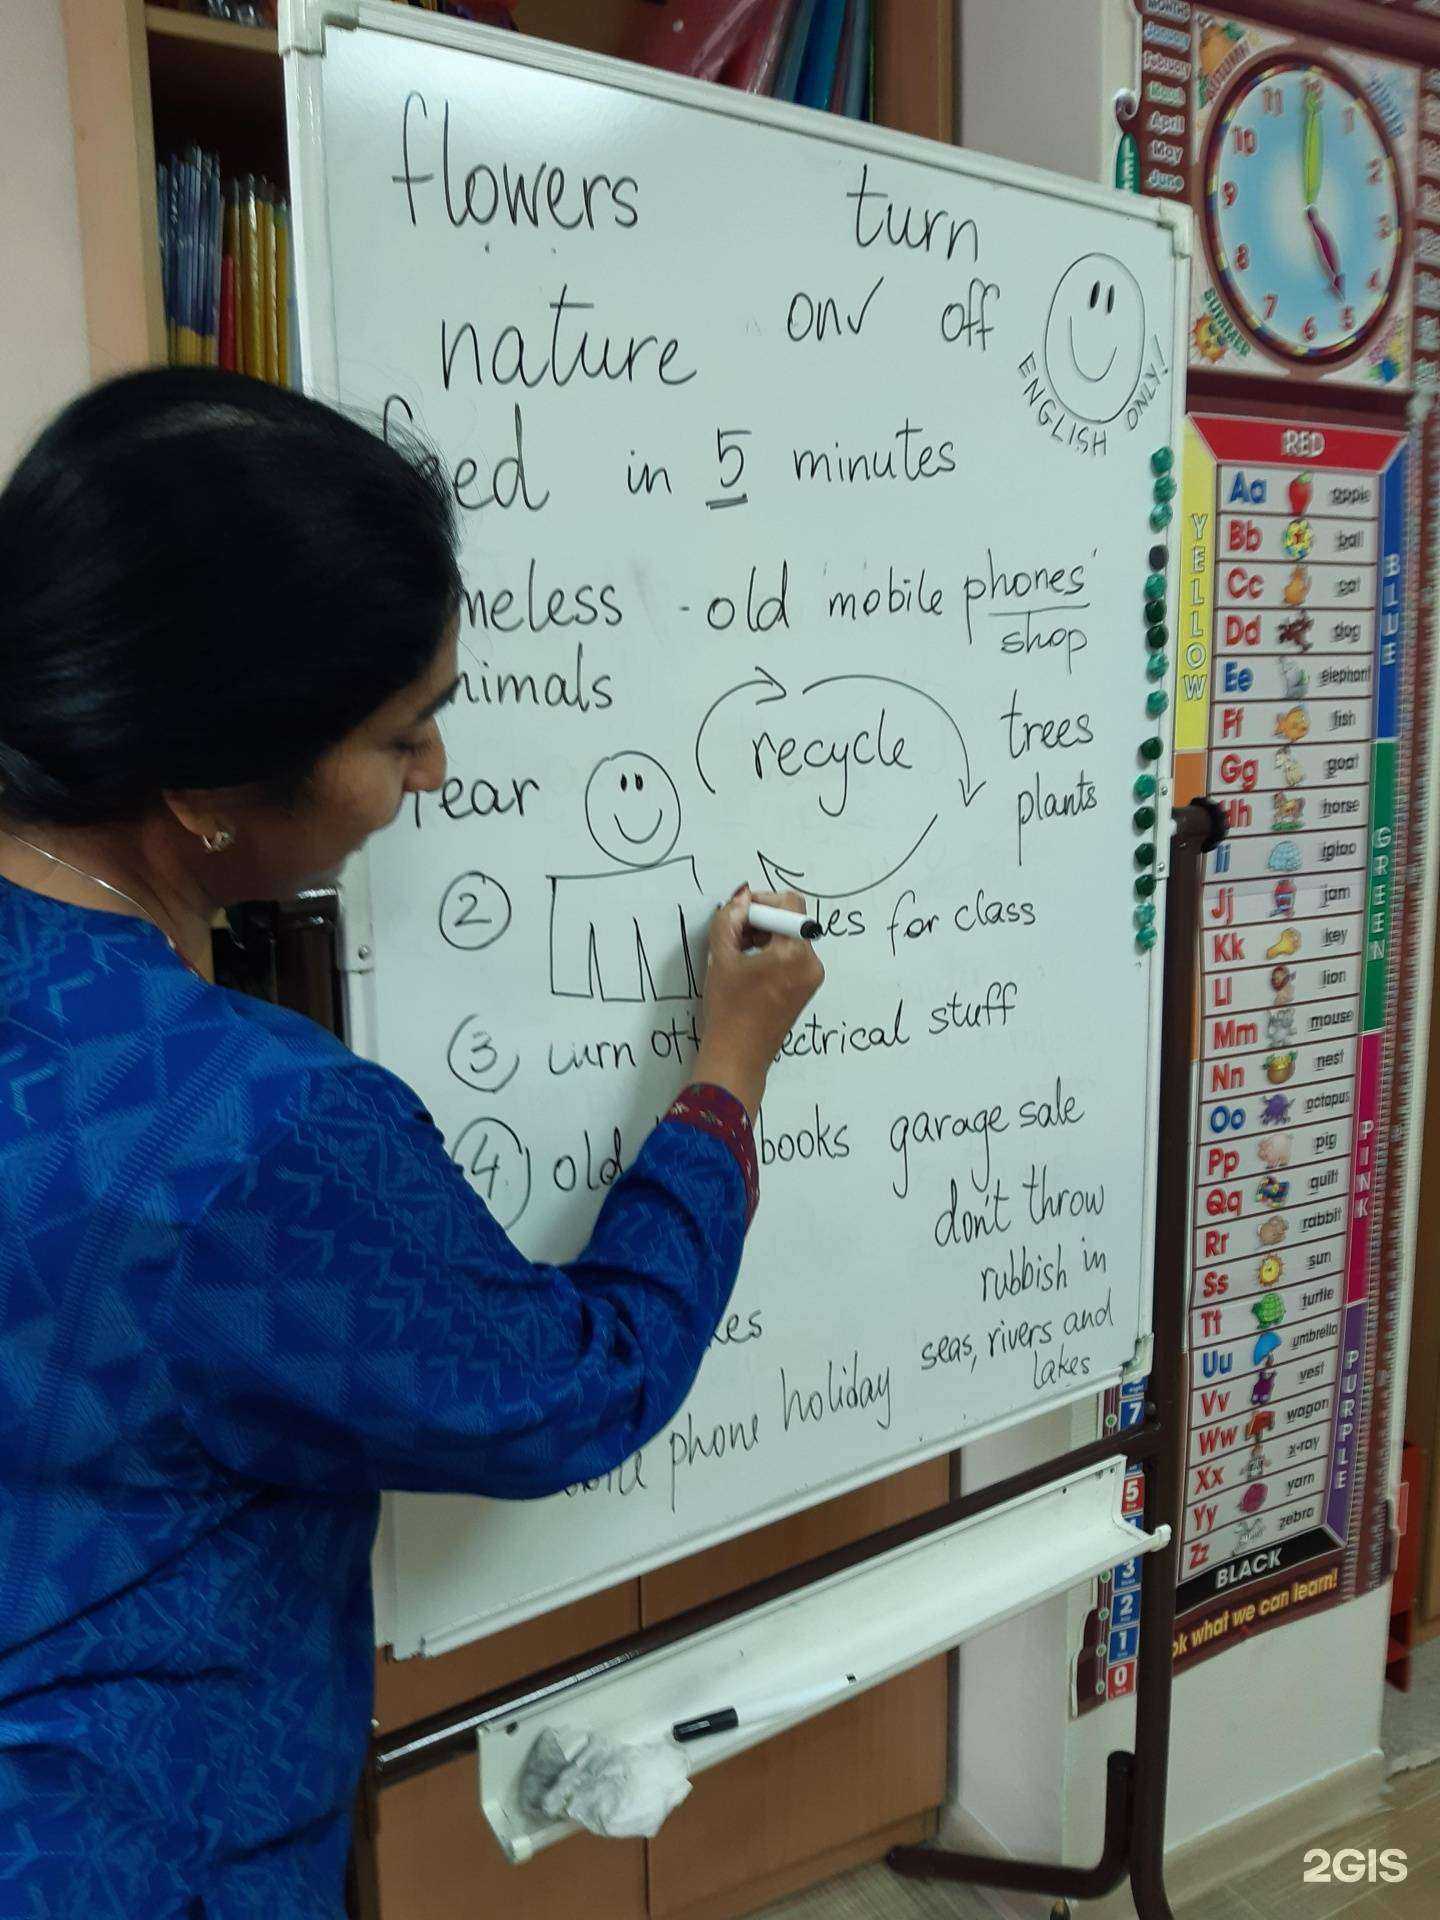 flowers turn
nature on✓ off
ENGLISH ONLY!
feed in 5 minutes
old mobile phones'
shop
recycle trees
plants
② for class
③ turn off electrical stuff
④ old books garage sale
don't throw
rubbish in
seas, rivers and
lakes
phone holiday
MONTHS
January
February
March
April
May
June
SUMMER
11 12 1
10 2
9 3
8 4
7 6 5
RED
YELLOW
BLUE
GREEN
PINK
PURPLE
BLACK
Aa apple
Bb ball
Cc cat
Dd dog
Ee elephant
Ff fish
Gg goat
Hh horse
Ii igloo
Jj jam
Kk key
Ll lion
Mm mouse
Nn nest
Oo octopus
Pp pig
Qq quilt
Rr rabbit
Ss sun
Tt turtle
Uu umbrella
Vv vest
Ww wagon
Xx x-ray
Yy yarn
Zz zebra
what we can learn!
7
5
3
2
1
0
2GIS